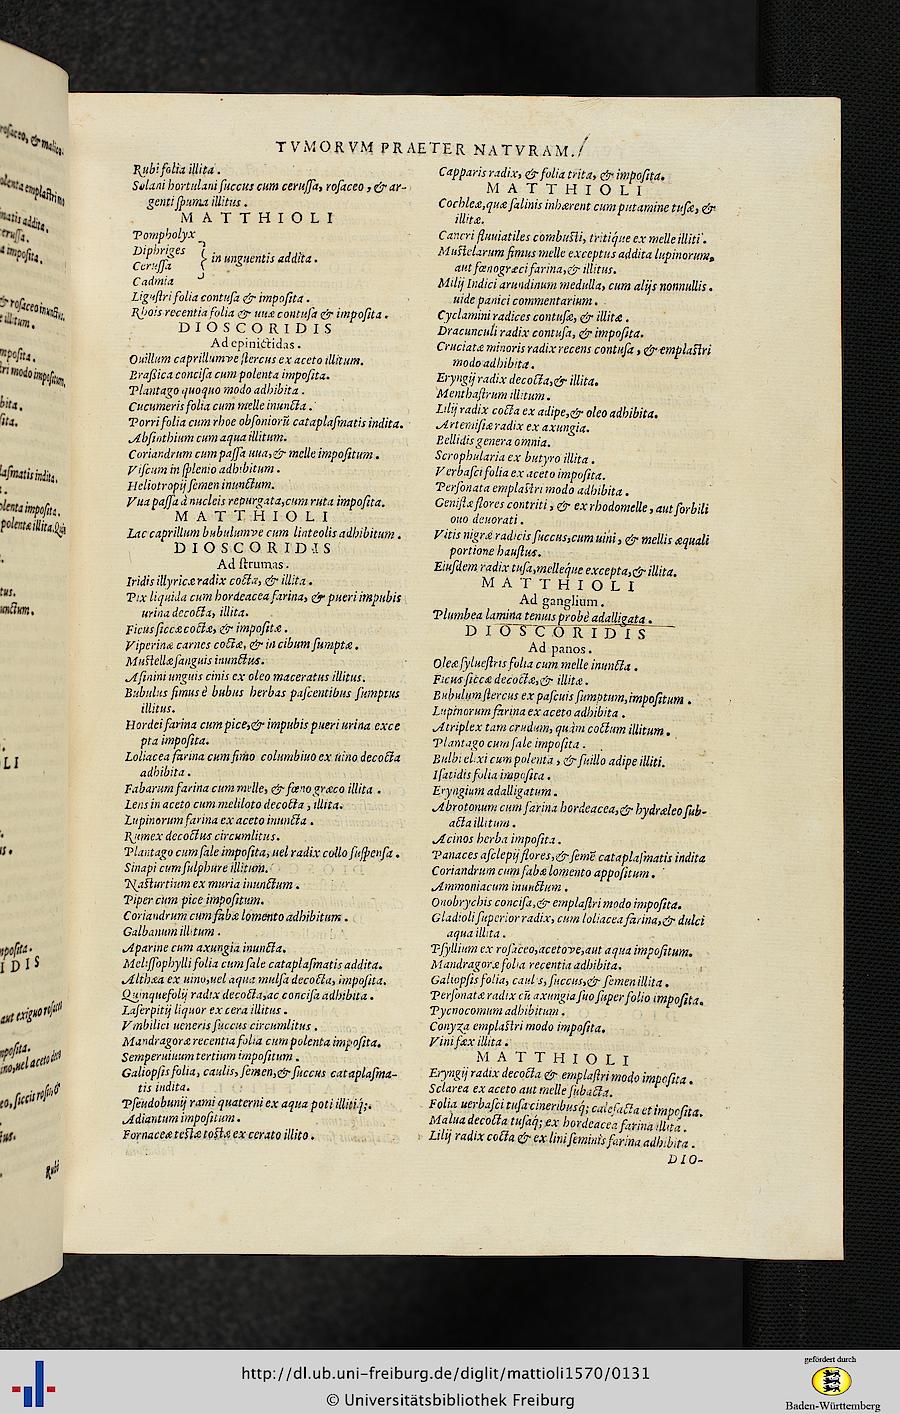 TVMORVM PRAETER NATVRAM.
Rubi folia illita.
Solani hortulani ſuccus cum ceruſſa, roſaceo, & ar-
genti ſpuma illitus.
MATTHIOLI
Pompholyx
Diphriges
Ceruſſa
Cadmia
in unguentis addita.
Liguſtri folia contuſa & impoſita.
Rhois recentia folia & uuæ contuſa & impoſita.
DIOSCORIDIS
Ad epinictidas.
Ouillum caprillumve ſtercus ex aceto illitum.
Braſſica conciſa cum polenta impoſita.
Plantago quoquo modo adhibita.
Cucumeris folia cum melle inuncta.
Porri folia cum rhoe obſoniorū cataplaſmatis indita.
Abſinthium cum aqua illitum.
Coriandrum cum paſſa uua, & melle impoſitum.
Viſcum in ſplenio adhibitum.
Heliotropij ſemen inunctum.
Vua paſſa à nucleis repurgata, cum ruta impoſita.
MATTHIOLI
Lac caprillum bubulumve cum linteolis adhibitum.
DIOSCORIDIS
Ad ſtrumas.
Iridis illyricæ radix cocta, & illita.
Pix liquida cum hordeacea farina, & pueri impubis
urina decocta, illita.
Ficus ſiccæ coctæ, & impoſitæ.
Viperinæ carnes coctæ, & in cibum ſumptæ.
Muſtellæ ſanguis inunctus.
Aſinini unguis cinis ex oleo maceratus illitus.
Bubulus fimus è bubus herbas paſcentibus ſumptus
illitus.
Hordei farina cum pice, & impubis pueri urina exce
pta impoſita.
Loliacea farina cum fimo columbino ex uino decocta
adhibita.
Fabarum farina cum melle, & fœno græco illita.
Lens in aceto cum meliloto decocta, illita.
Lupinorum farina ex aceto inuncta.
Rumex decoctus circumlitus.
Plantago cum ſale impoſita, uel radix collo ſuſpenſa.
Sinapi cum ſulphure illitum.
Naſturtium ex muria inunctum.
Piper cum pice impoſitum.
Coriandrum cum fabæ lomento adhibitum.
Galbanum illitum.
Aparine cum axungia inuncta.
Meliſſophylli folia cum ſale cataplaſmatis addita.
Althæa ex uino, uel aqua mulſa decocta, impoſita.
Quinquefolij radix decocta, ac conciſa adhibita.
Laſerpitij liquor ex cera illitus.
Vmbilici ueneris ſuccus circumlitus.
Mandragoræ recentia folia cum polenta impoſita.
Semperuiuum tertium impoſitum.
Galiopſis folia, caulis, ſemen, & ſuccus cataplaſma-
tis indita.
Pſeudobunij rami quaterni ex aqua poti illitiq́;.
Adiantum impoſitum.
Fornaceæ teſtæ toſtæ ex cerato illito.
Capparis radix, & folia trita, & impoſita.
MATTHIOLI
Cochleæ, quæ ſalinis inhærent cum putamine tuſæ, &
illitæ.
Cancri fluuiatiles combuſti, tritiq́ue ex melle illiti.
Muſtelarum fimus melle exceptus addita lupinorum,
aut fœnogræci farina, & illitus.
Milij Indici arundinum medulla, cum alijs nonnullis.
uide panici commentarium.
Cyclamini radices contuſæ, & illitæ.
Dracunculi radix contuſa, & impoſita.
Cruciatæ minoris radix recens contuſa, & emplaſtri
modo adhibita.
Eryngij radix decocta, & illita.
Menthaſtrum illitum.
Lilij radix cocta ex adipe, & oleo adhibita.
Artemiſiæ radix ex axungia.
Bellidis genera omnia.
Scrophularia ex butyro illita.
Verbaſci folia ex aceto impoſita.
Perſonata emplaſtri modo adhibita.
Geniſtæ flores contriti, & ex rhodomelle, aut ſorbili
ouo deuorati.
Vitis nigræ radicis ſuccus, cum uini, & mellis æquali
portione hauſtus.
Eiuſdem radix tuſa, melleq́ue excepta, & illita.
MATTHIOLI
Ad ganglium.
Plumbea lamina tenuis probè adalligata.
DIOSCORIDIS
Ad panos.
Oleæ ſylueſtris folia cum melle inuncta.
Ficus ſiccæ decoctæ, & illitæ.
Bubulum ſtercus ex paſcuis ſumptum, impoſitum.
Lupinorum farina ex aceto adhibita.
Atriplex tam crudum, quàm coctum illitum.
Plantago cum ſale impoſita.
Bulbi elixi cum polenta, & ſuillo adipe illiti.
Iſatidis folia impoſita.
Eryngium adalligatum.
Abrotonum cum farina hordeacea, & hydræleo ſub-
acta illitum.
Acinos herba impoſita.
Panaces aſclepij flores, & ſemē cataplaſmatis indita
Coriandrum cum fabæ lomento appoſitum.
Ammoniacum inunctum.
Onobrychis conciſa, & emplaſtri modo impoſita.
Gladioli ſuperior radix, cum loliacea farina, & dulci
aqua illita.
Pſyllium ex roſaceo, acetove, aut aqua impoſitum.
Mandragoræ folia recentia adhibita.
Galiopſis folia, caulis, ſuccus, & ſemen illita.
Perſonatæ radix cū axungia ſuo ſuper folio impoſita.
Pycnocomum adhibitum.
Conyza emplaſtri modo impoſita.
Vini fæx illita.
MATTHIOLI
Eryngij radix decocta & emplaſtri modo impoſita.
Sclarea ex aceto aut melle ſubacta.
Folia uerbaſci tuſa cineribusq́; calefacta et impoſita.
Malua decocta tuſaq́; ex hordeacea farina illita.
Lilij radix cocta & ex lini ſeminis farina adhibita.
DIO-
http://dl.ub.uni-freiburg.de/diglit/mattioli1570/0131
© Universitätsbibliothek Freiburg
gefördert durch
Baden-Württemberg